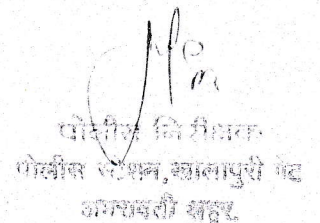 पोलीस निरीक्षक
पोलीस स्टेशन, खोलापुरी गेट
अमरावती शहर.